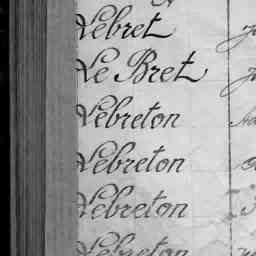 Lebret
Le Bret
Lebreton
Lebreton
Lebreton
Lebreton